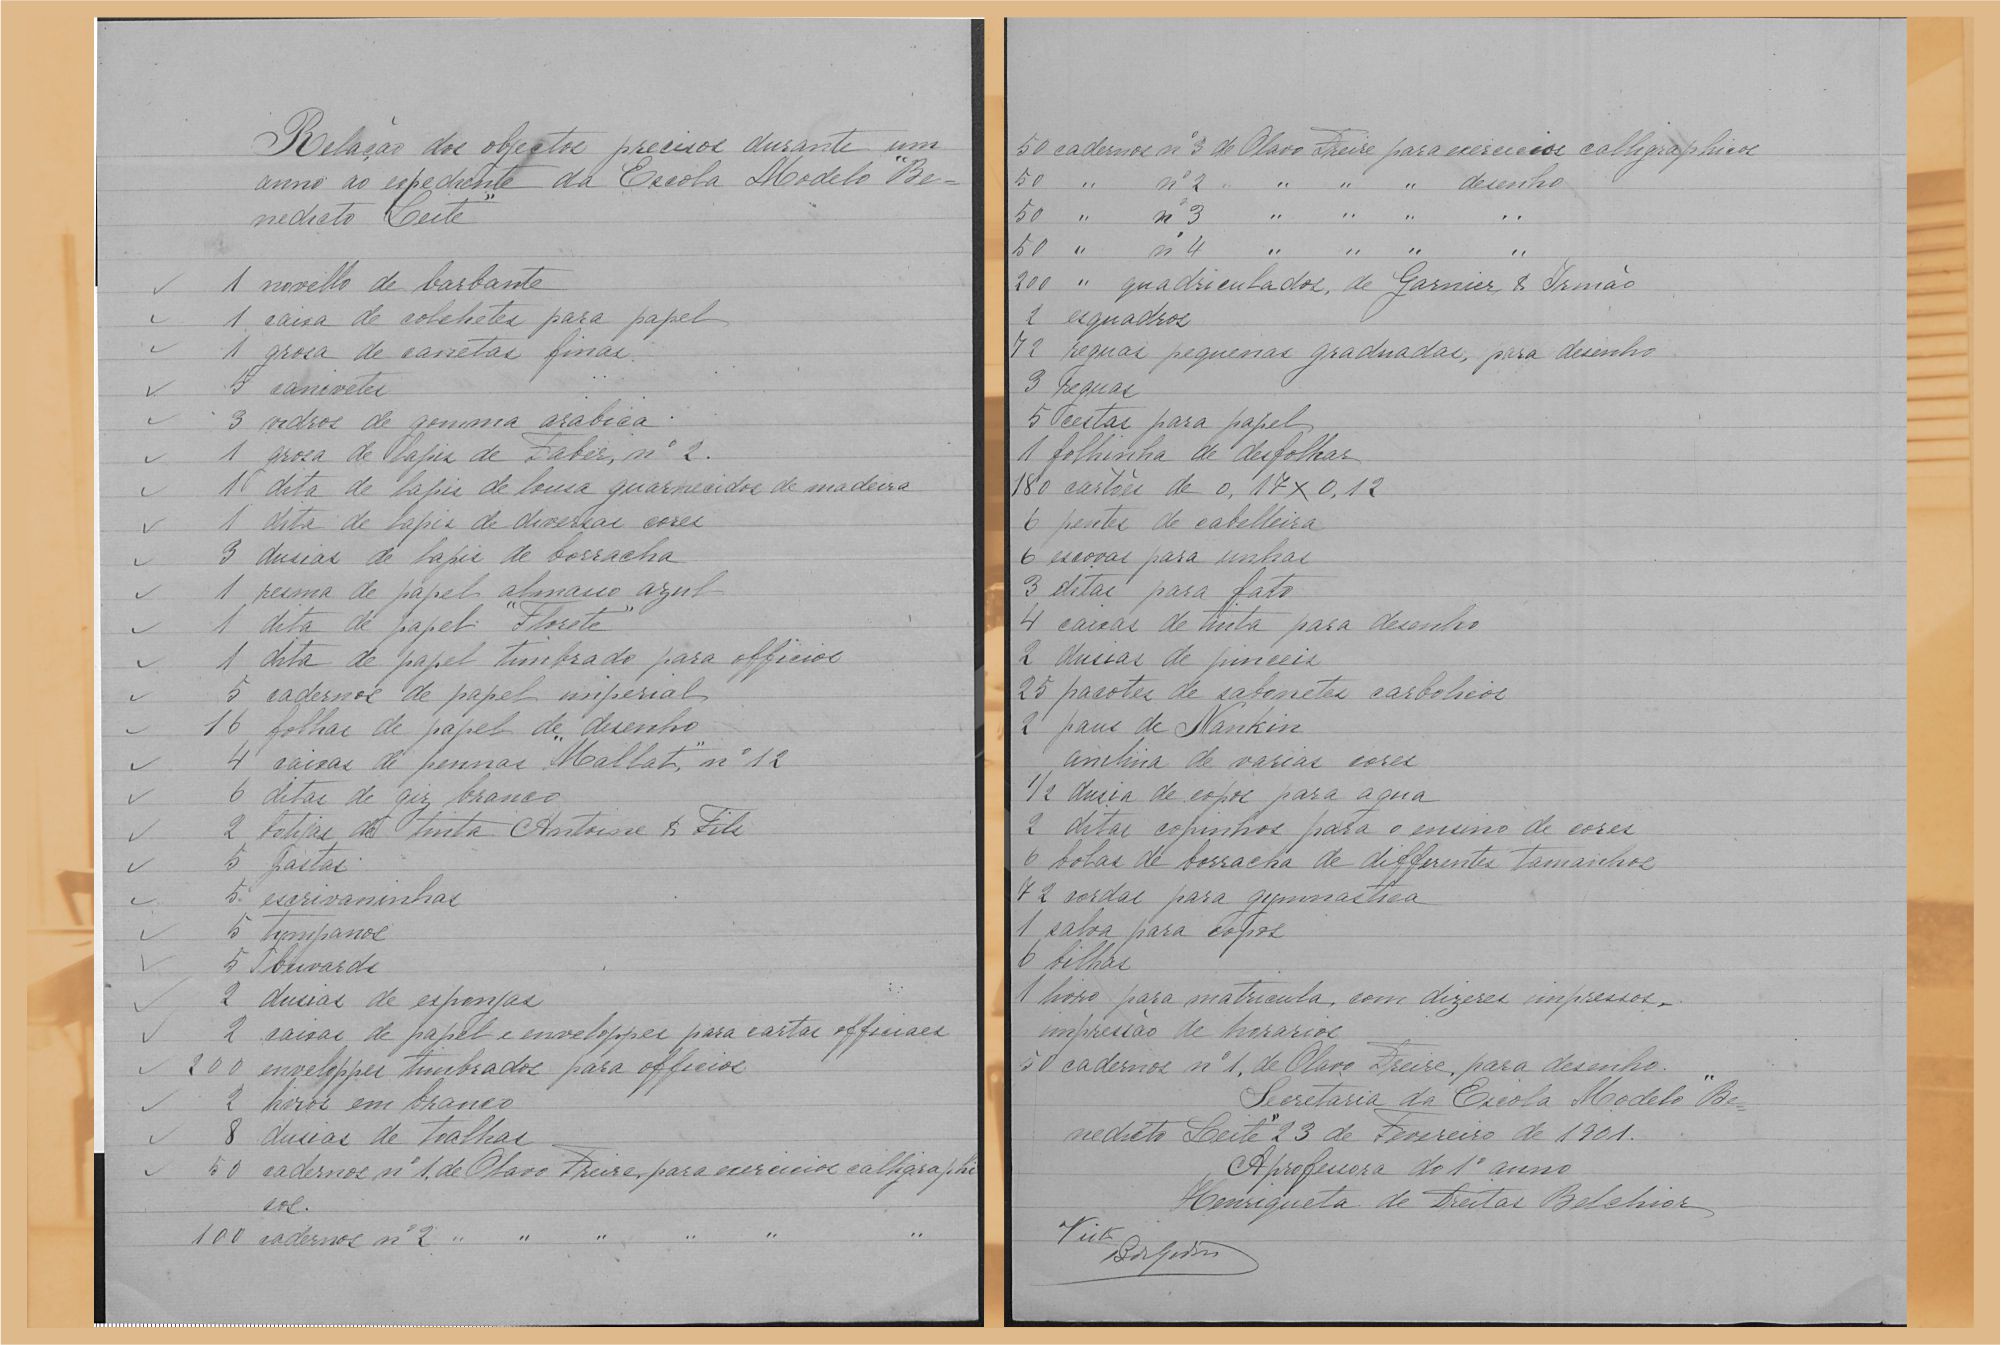 Relação dos objectos precisos durante um
anno ao expediente da Escola Modelo "Be-
nedicto Leite"
1 novello de barbante
1 caixa de colchetes para papel
1 grosa de canetas finas.
5 canivetes
3 vidros de gomma arabica.
1 grosa de lapis de Faber, nº 2.
1 dita de lapis de lousa guarnecidos de madeira
1 dita de lapis de diversas cores
3 dusias de lapis de borracha
1 resma de papel almasso azul
1 dita de papel "Florete"
1 dita de papel timbrado para officios
5 cadernos de papel imperial
16 folhas de papel de desenho
4 caixas de pennas "Mallat", nº 12
6 ditas de giz branco
2 botijas de tinta Antoine & Fils
5 pastas
5 escrivaninhas
5 tympanos
5 buvards
2 dusias de esponjas
2 caixas de papel e enveloppes para cartas officiaes
200 enveloppes timbrados para officios
2 livros em branco
8 dusias de toalhas
50 cadernos nº 1, de Olavo Freire, para exercicios calligraphi
cos.
100 cadernos nº 2 " " " " " "
50 cadernos nº 3 de Olavo Freire para exercicios calligraphicos
50 " nº 2 " " " desenho
50 " nº 3 " " " "
50 " nº 4 " " " "
200 " quadriculados, de Garnier & Irmão
2 esquadros
72 reguas pequenas graduadas, para desenho
3 reguas
5 cestas para papel
1 folhinha de desfolhar
180 cartões de 0,17 x 0,12
6 pentes de cabelleira
6 escovas para unhas
3 ditas para fato
4 caixas de tinta para desenho
2 dusias de pinceis
25 pacotes de sabonetes carbolicos
2 paus de Nankin
anilina de varias cores
1/2 dusia de copos para agua
2 ditas copinhos para o ensino de cores
6 bolas de borracha de differentes tamanhos
72 cordas para gymnastica
1 salva para copos
6 bilhas
1 livro para matricula, com dizeres impressos,
impressão de horarios
50 cadernos nº 1, de Olavo Freire, para desenho.
Secretaria da Escola Modelo "Be-
nedicto Leite" 23 de Fevereiro de 1901.
A professora do 1º anno
Henriqueta de Freitas Belchior
Visto